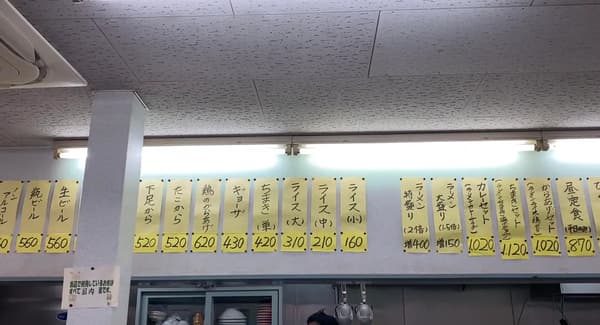 ノン
アルコール
瓶ビール
560
生ビール
560
下足から
520
たこから
520
鶏のから揚げ
620
ギョーザ
430
ちまき(単)
420
ライス(大)
310
ライス(中)
210
ライス(小)
160
ラーメン
特盛り(2倍)
増400
ラーメン
大盛り(1.5倍)
増150
カレーセット
1020
ちまきセット
1120
から揚げセット
1020
昼定食
(平日のみ)
870